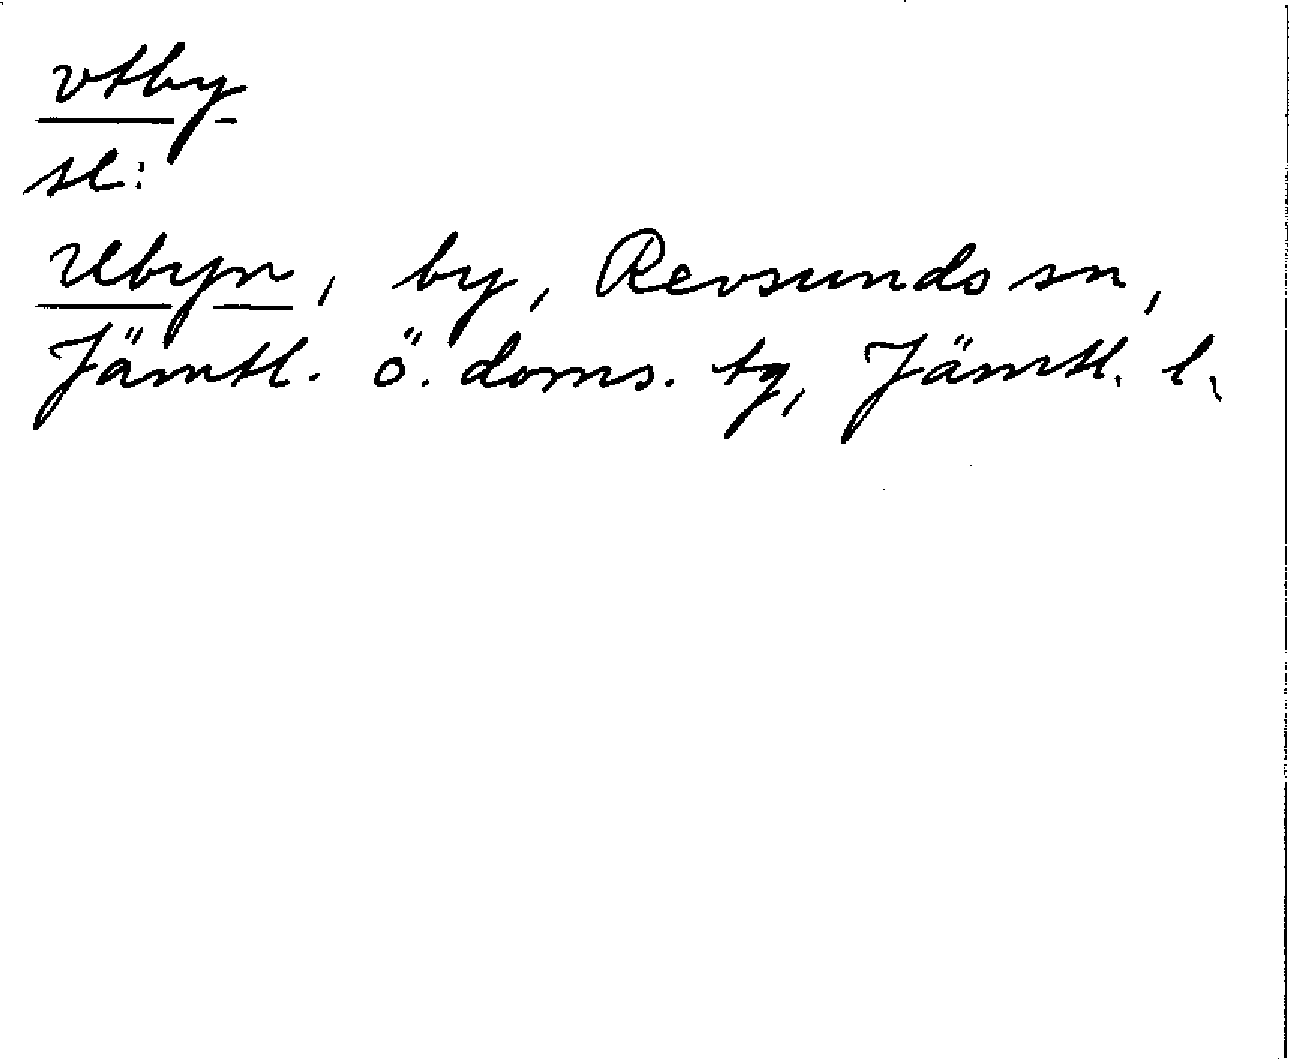 vtby
se:
Utbyn, by, Revsunds sn,
Jämtl. ö. doms. tg, Jämtl. l.